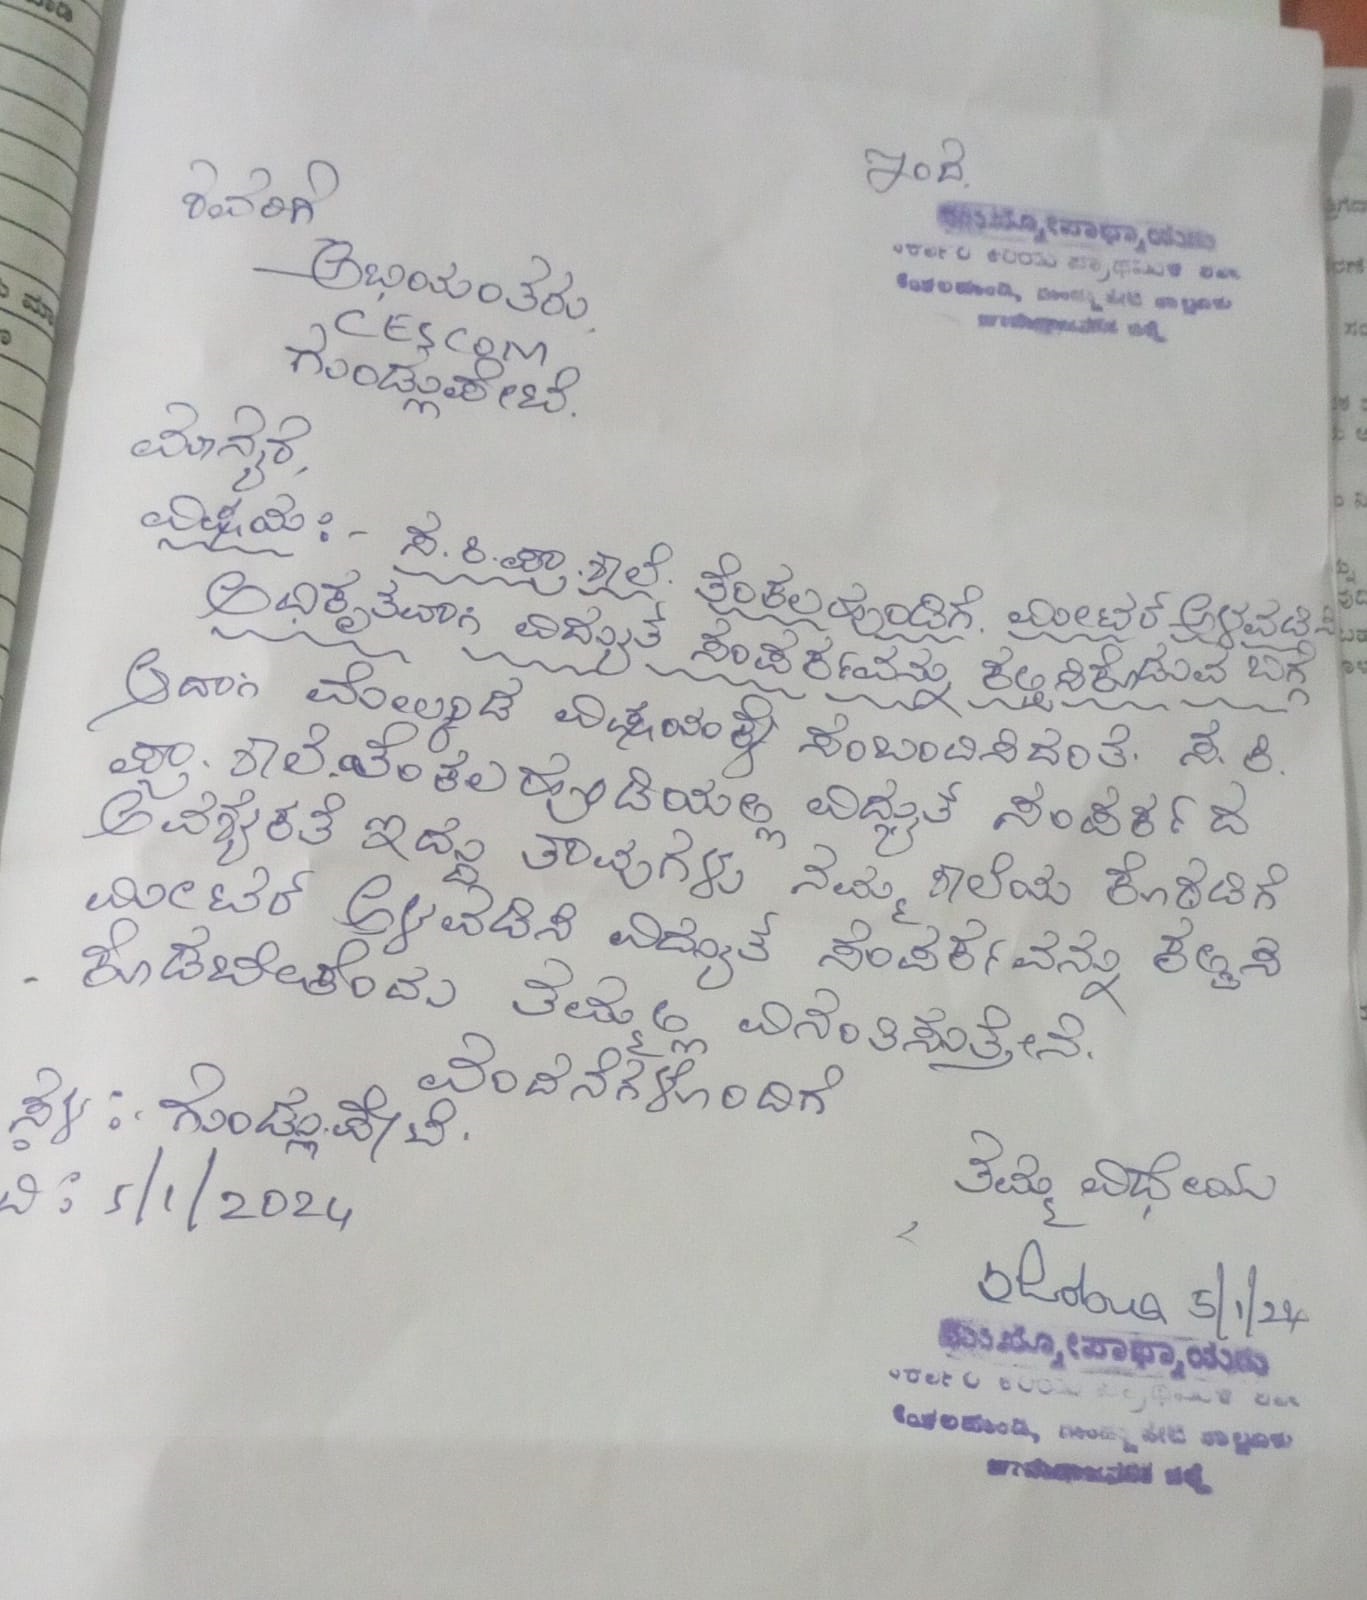 ಇಂದ.
ಮುಖ್ಯೋಪಾಧ್ಯಾಯರು
ಕಿರಿಯ ಪ್ರಾಥಮಿಕ
ಗುಂಡ್ಲುಪೇಟೆ ತಾಲ್ಲೂಕು
ಚಾಮರಾಜನಗರ ಜಿಲ್ಲೆ
ರವರಿಗೆ
ಅಭಿಯಂತರು,
CESCOM
ಗುಂಡ್ಲುಪೇಟೆ.
ಮಾನ್ಯರೆ,
ವಿಷಯ :- ಸ.ಕಿ.ಪ್ರಾ.ಶಾಲೆ. ತೆಂಕಲಹುಂಡಿಗೆ. ಮೀಟರ್ ಅಳವಡಿಸಿ
ಅಧಿಕೃತವಾಗಿ ವಿದ್ಯುತ್ ಸಂಪರ್ಕವನ್ನು ಕಲ್ಪಿಸಿಕೊಡುವ ಬಗ್ಗೆ
ಅದಾಗಿ ಮೇಲ್ಕಂಡ ವಿಷಯಕ್ಕೇ ಸಂಬಂದಿಸಿದಂತೆ. ಸ. ಕಿ.
ಪ್ರಾ. ಶಾಲೆ. ತೆಂಕಲಹುಂಡಿಯಲ್ಲಿ ವಿದ್ಯುತ್ ಸಂಪರ್ಕದ
ಅವಶ್ಯಕತೆ ಇದ್ದು ತಾವುಗಳು ನಮ್ಮ ಶಾಲೆಯ ಕೊಠಡಿಗೆ
ಮೀಟರ್ ಅಳವಡಿಸಿ ವಿದ್ಯುತ್ ಸಂಪರ್ಕವನ್ನು ಕಲ್ಪಿಸಿ
- ಕೊಡಬೇಕೆಂದು ತಮ್ಮಲ್ಲಿ ವಿನಂತಿಸುತ್ತೇನೆ.
ವಂದನೆಗಳೊಂದಿಗೆ
ಸ್ಥಳ :. ಗುಂಡ್ಲುಪೇಟೆ.
ದಿ : 5/1/2024
ತಮ್ಮ ವಿಧೇಯ
5/1/24
ಮುಖ್ಯೋಪಾಧ್ಯಾಯರು
ಕಿರಿಯ ಪ್ರಾಥಮಿಕ
ಗುಂಡ್ಲುಪೇಟೆ ತಾಲ್ಲೂಕು
ಚಾಮರಾಜನಗರ ಜಿಲ್ಲೆ